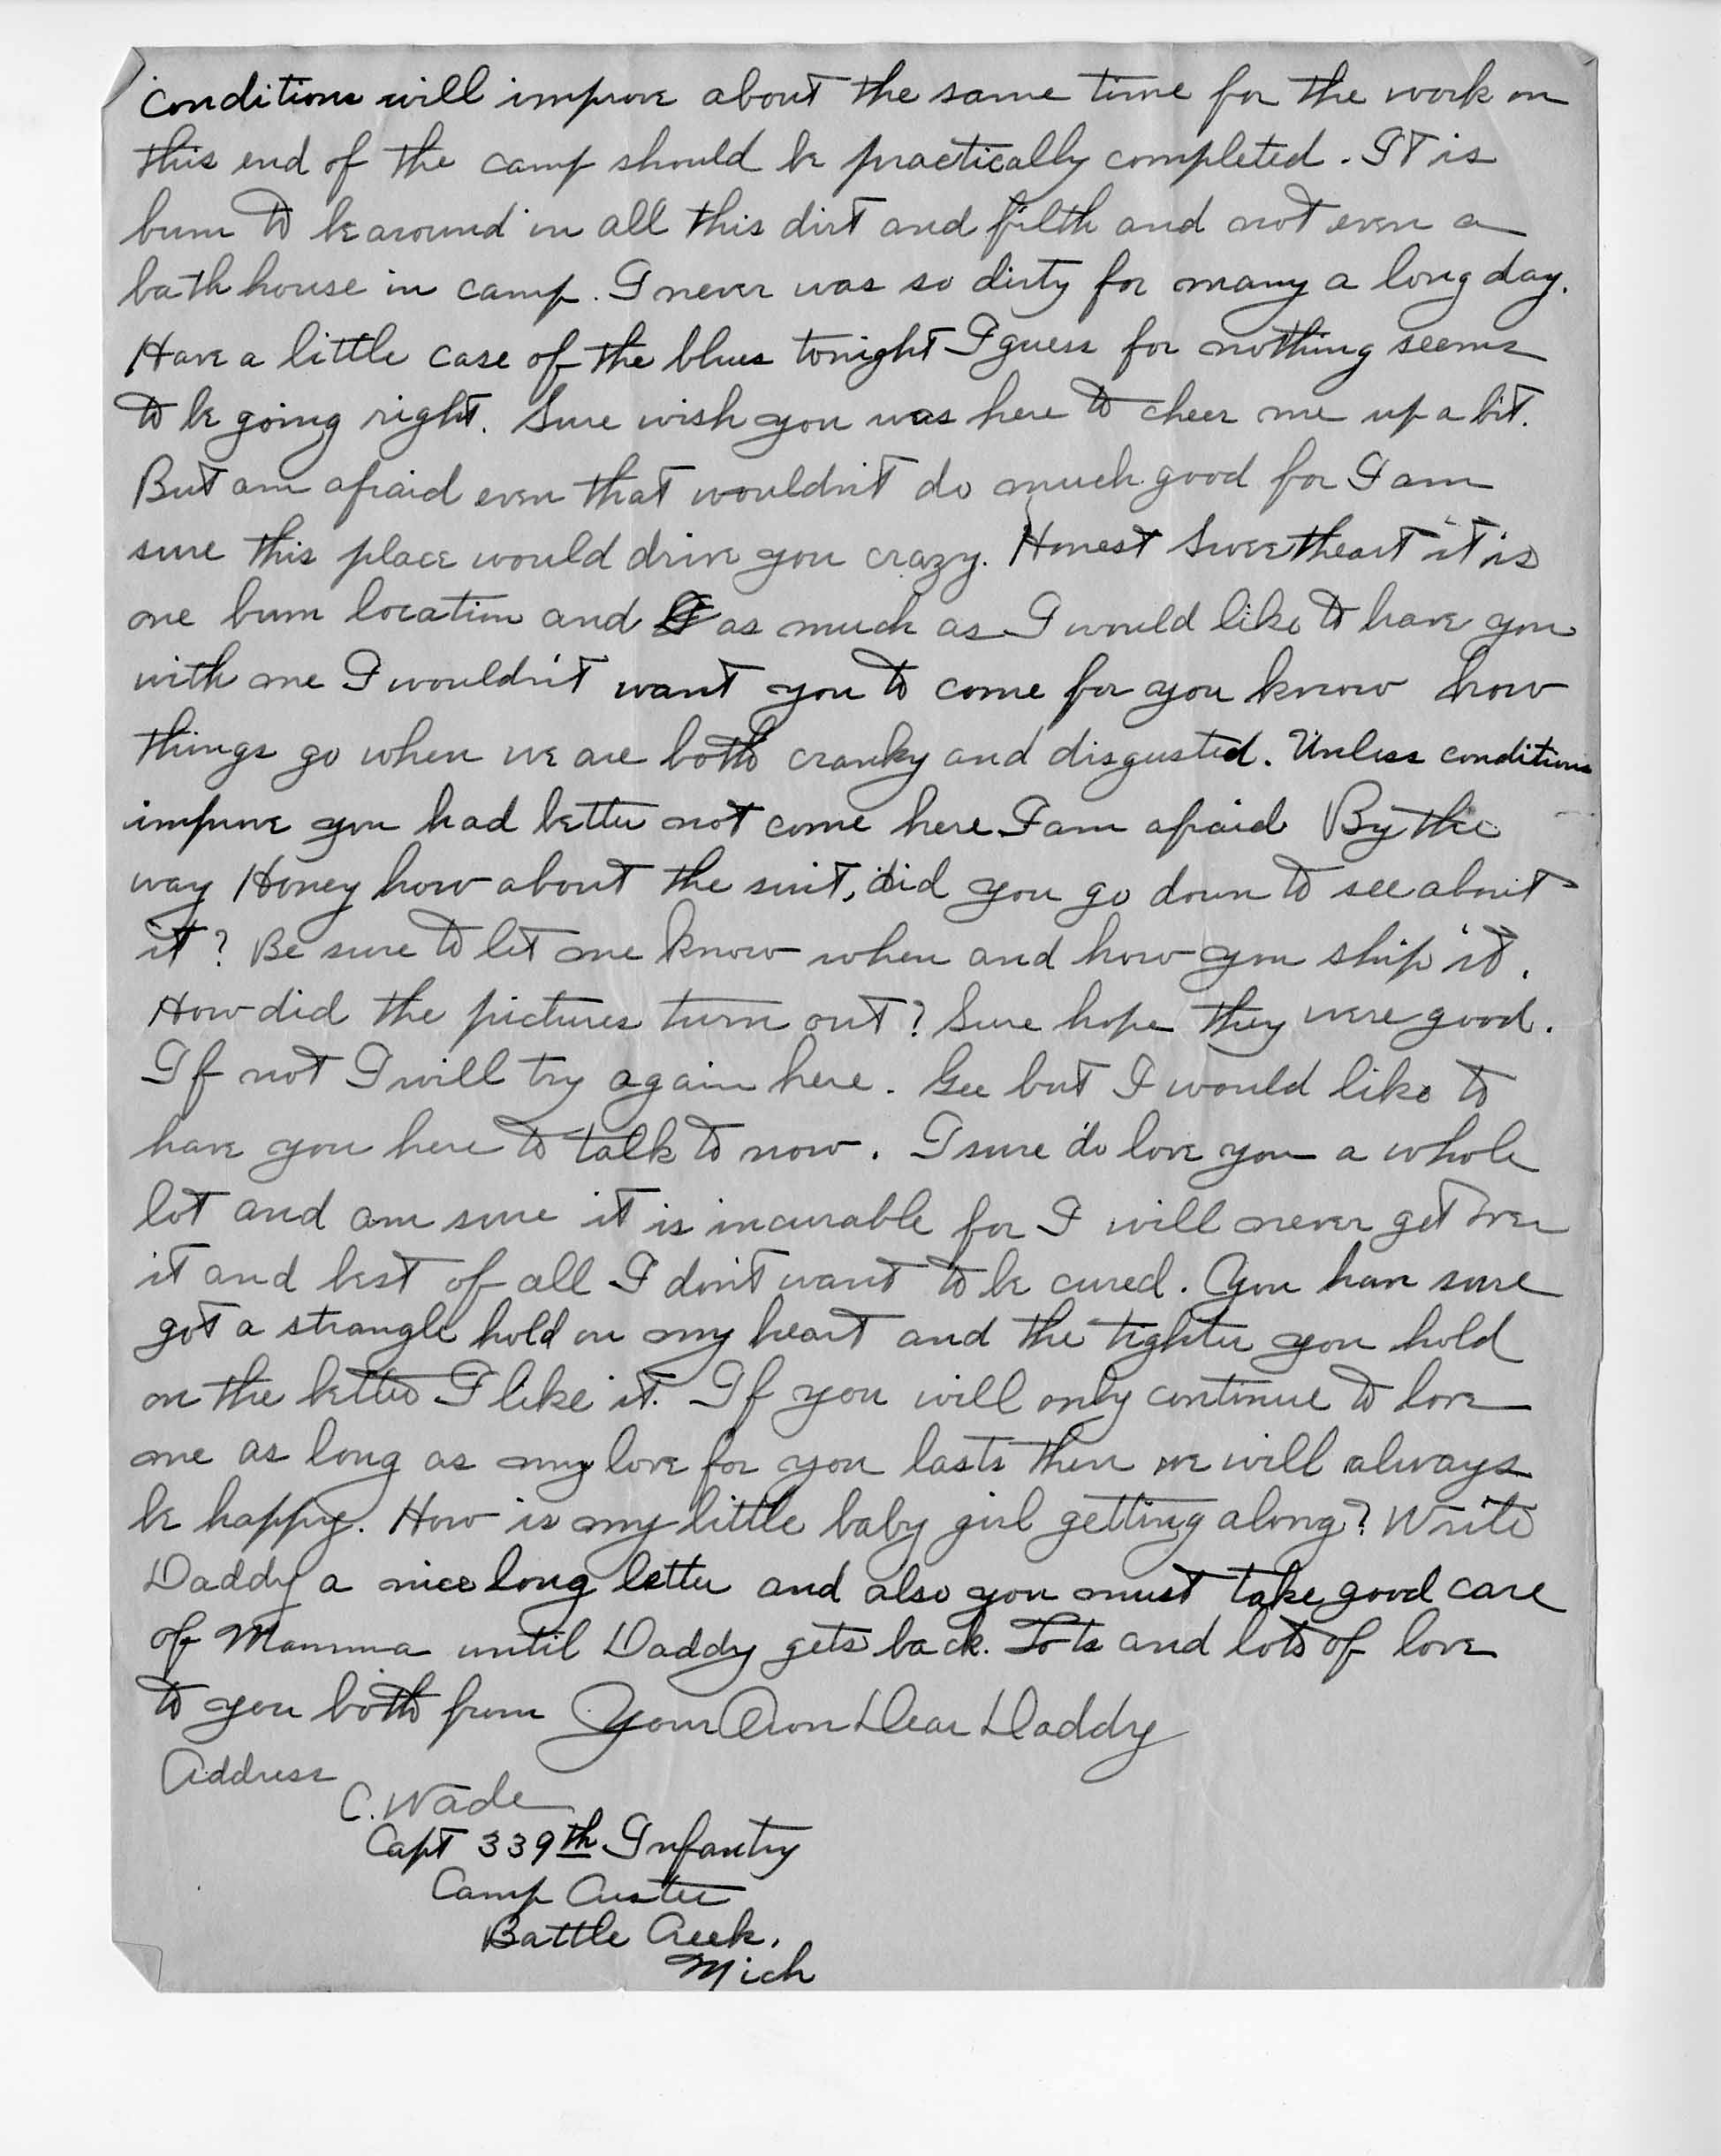 conditions will improve about the same time for the work on
this end of the camp should be practically completed. It is
bum to be around in all this dirt and filth and not even a
bath house in camp. I never was so dirty for many a long day.
Have a little case of the blues tonight I guess for nothing seems
to be going right. Sure wish you was here to cheer me up a bit.
But am afraid even that wouldn't do much good for I am
sure this place would drive you crazy. Honest Sweetheart it is
one bum location and as much as I would like to have you
with me I wouldn't want you to come for you know how
things go when we are both cranky and disgusted. Unless conditions
improve you had better not come here I am afraid By the
way Honey how about the suit, did you go down to see about
it? Be sure to let me know when and how you ship it.
How did the pictures turn out? Sure hope they were good.
If not I will try again here. Gee but I would like to
have you here to talk to now. I sure do love you a whole
lot and am sure it is incurable for I will never get over
it and best of all I don't want to be cured. You have sure
got a strangle hold on my heart and the tighter you hold
on the better I like it. If you will only continue to love
me as long as my love for you lasts then we will always
be happy. How is my little baby girl getting along? Write
Daddy a nice long letter and also you must take good care
of Mamma until Daddy gets back. Lots and lots of love
to you both from Your Own Dear Daddy
Address
C. Wade
Capt 339th Infantry
Camp Custer
Battle Creek,
Mich